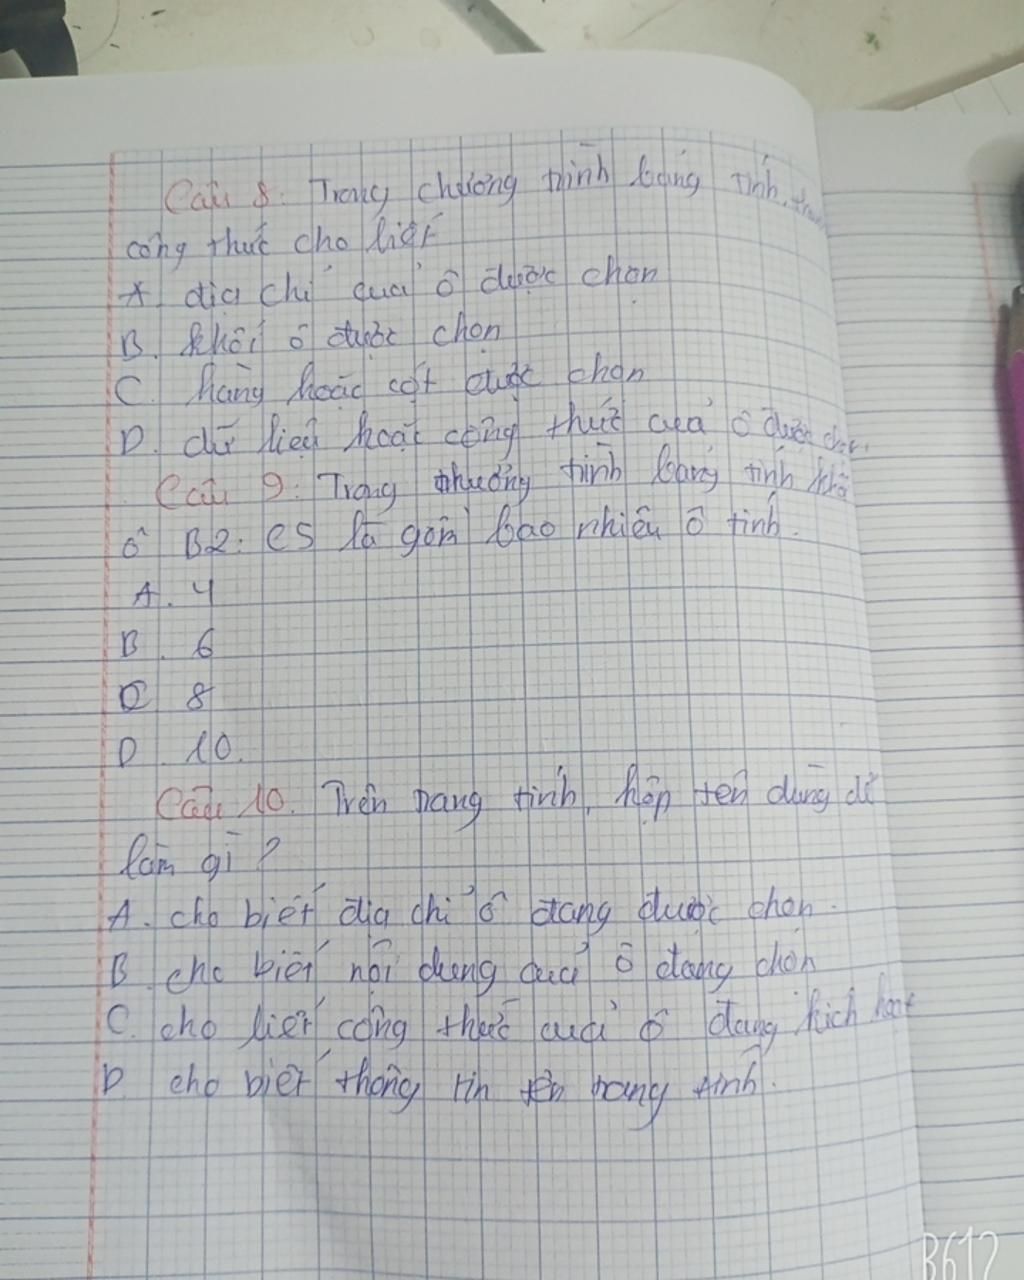 Câu 8: Trong chương trình bảng tính, tran
công thức cho biết
A địa chỉ của ô được chọn
B. khối ô được chọn
C. hàng hoặc cột được chọn
D. dữ liệu hoặc công thức của ô được chọn.
Câu 9: Trong chương trình bảng tính khối
ô B2: C5 là gồm bao nhiêu ô tính.
A. 4
B. 6
C 8
D 10.
Câu 10. Trên trang tính, hộp tên dùng để
làm gì?
A. cho biết địa chỉ ô đang được chọn.
B cho biết nội dung của ô đang chọn
C. cho biết công thức của ô đang kích hoạt
D cho biết thông tin tên trang tính.
B612